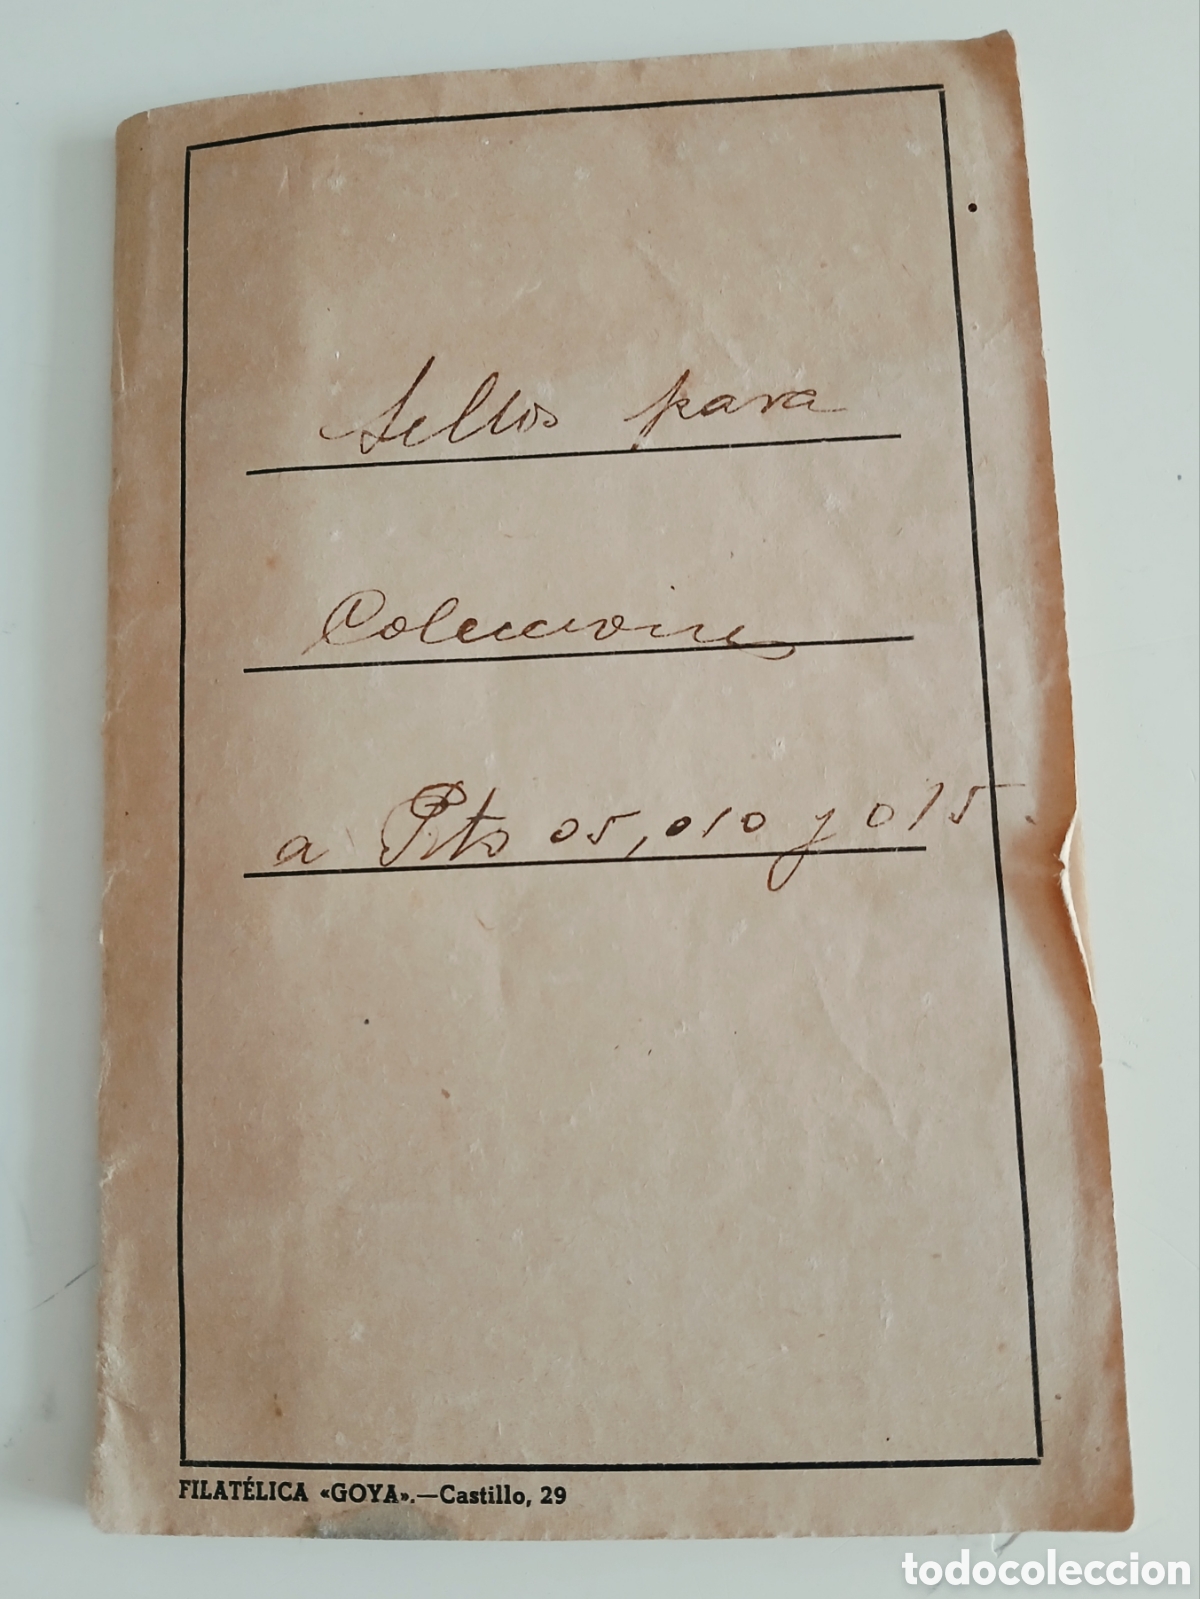 Sellos para
Colecciones
a Pts 05, 010 y 015
FILATÉLICA «GOYA».—Castillo, 29
todocoleccion